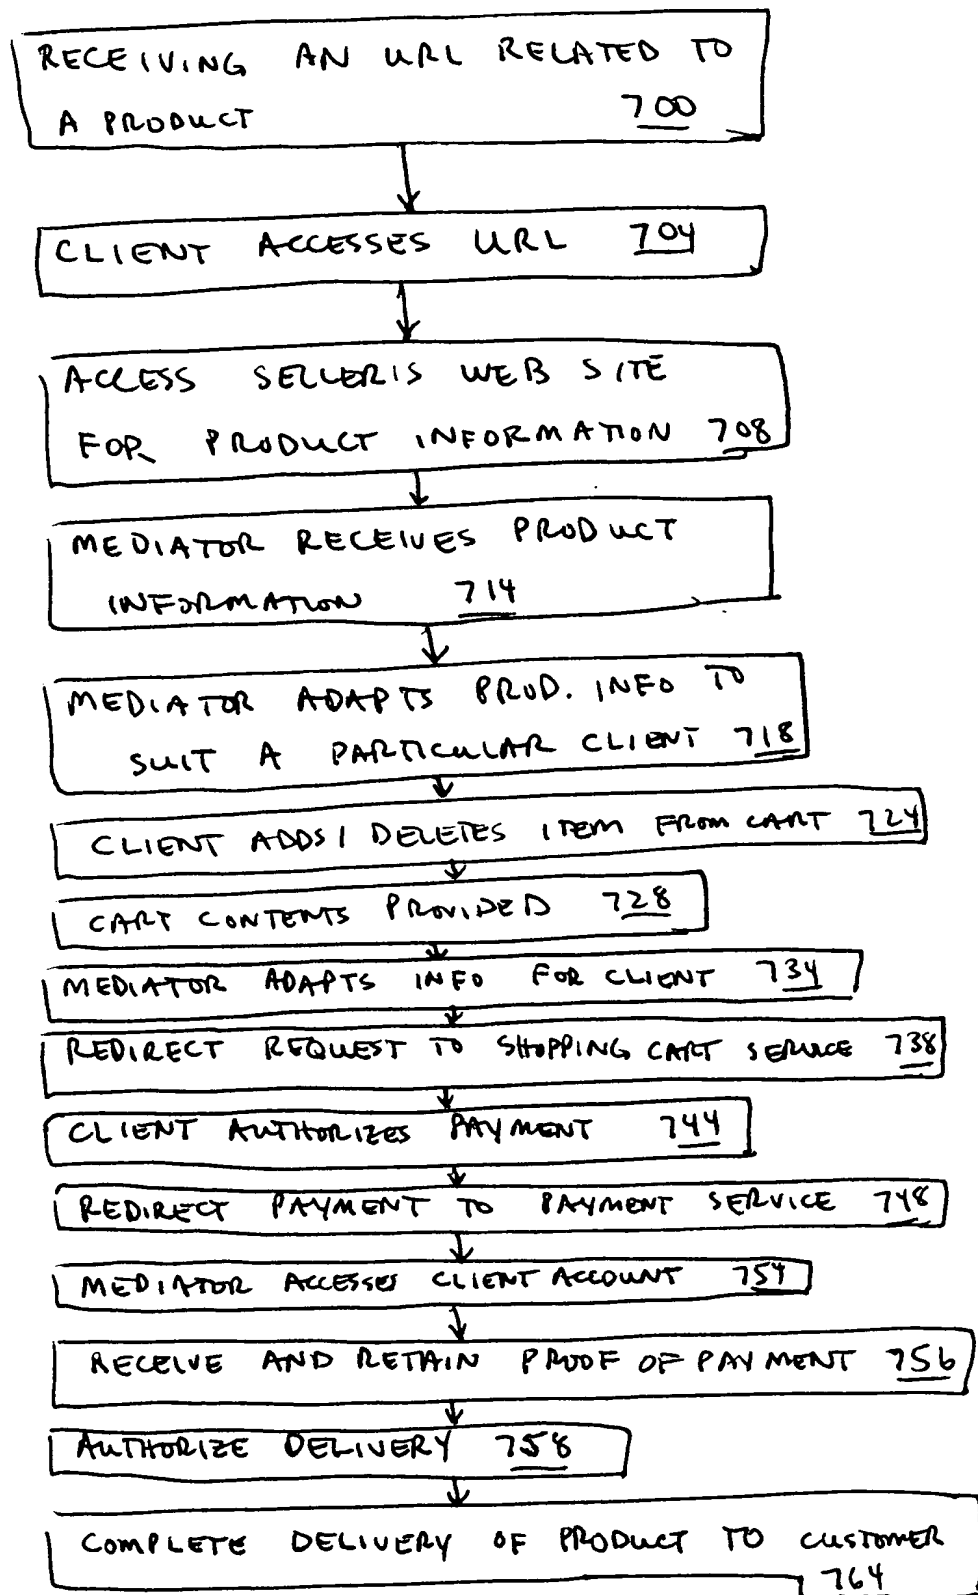 RECEIVING AN URL RELATED TO
A PRODUCT 700
CLIENT ACCESSES URL 704
ACCESS SELLER'S WEB SITE
FOR PRODUCT INFORMATION 708
MEDIATOR RECEIVES PRODUCT
INFORMATION 714
MEDIATOR ADAPTS PROD. INFO TO
SUIT A PARTICULAR CLIENT 718
CLIENT ADDS / DELETES ITEM FROM CART 724
CART CONTENTS PROVIDED 728
MEDIATOR ADAPTS INFO FOR CLIENT 734
REDIRECT REQUEST TO SHOPPING CART SERVICE 738
CLIENT AUTHORIZES PAYMENT 744
REDIRECT PAYMENT TO PAYMENT SERVICE 748
MEDIATOR ACCESSES CLIENT ACCOUNT 754
RECEIVE AND RETAIN PROOF OF PAYMENT 756
AUTHORIZE DELIVERY 758
COMPLETE DELIVERY OF PRODUCT TO CUSTOMER
764